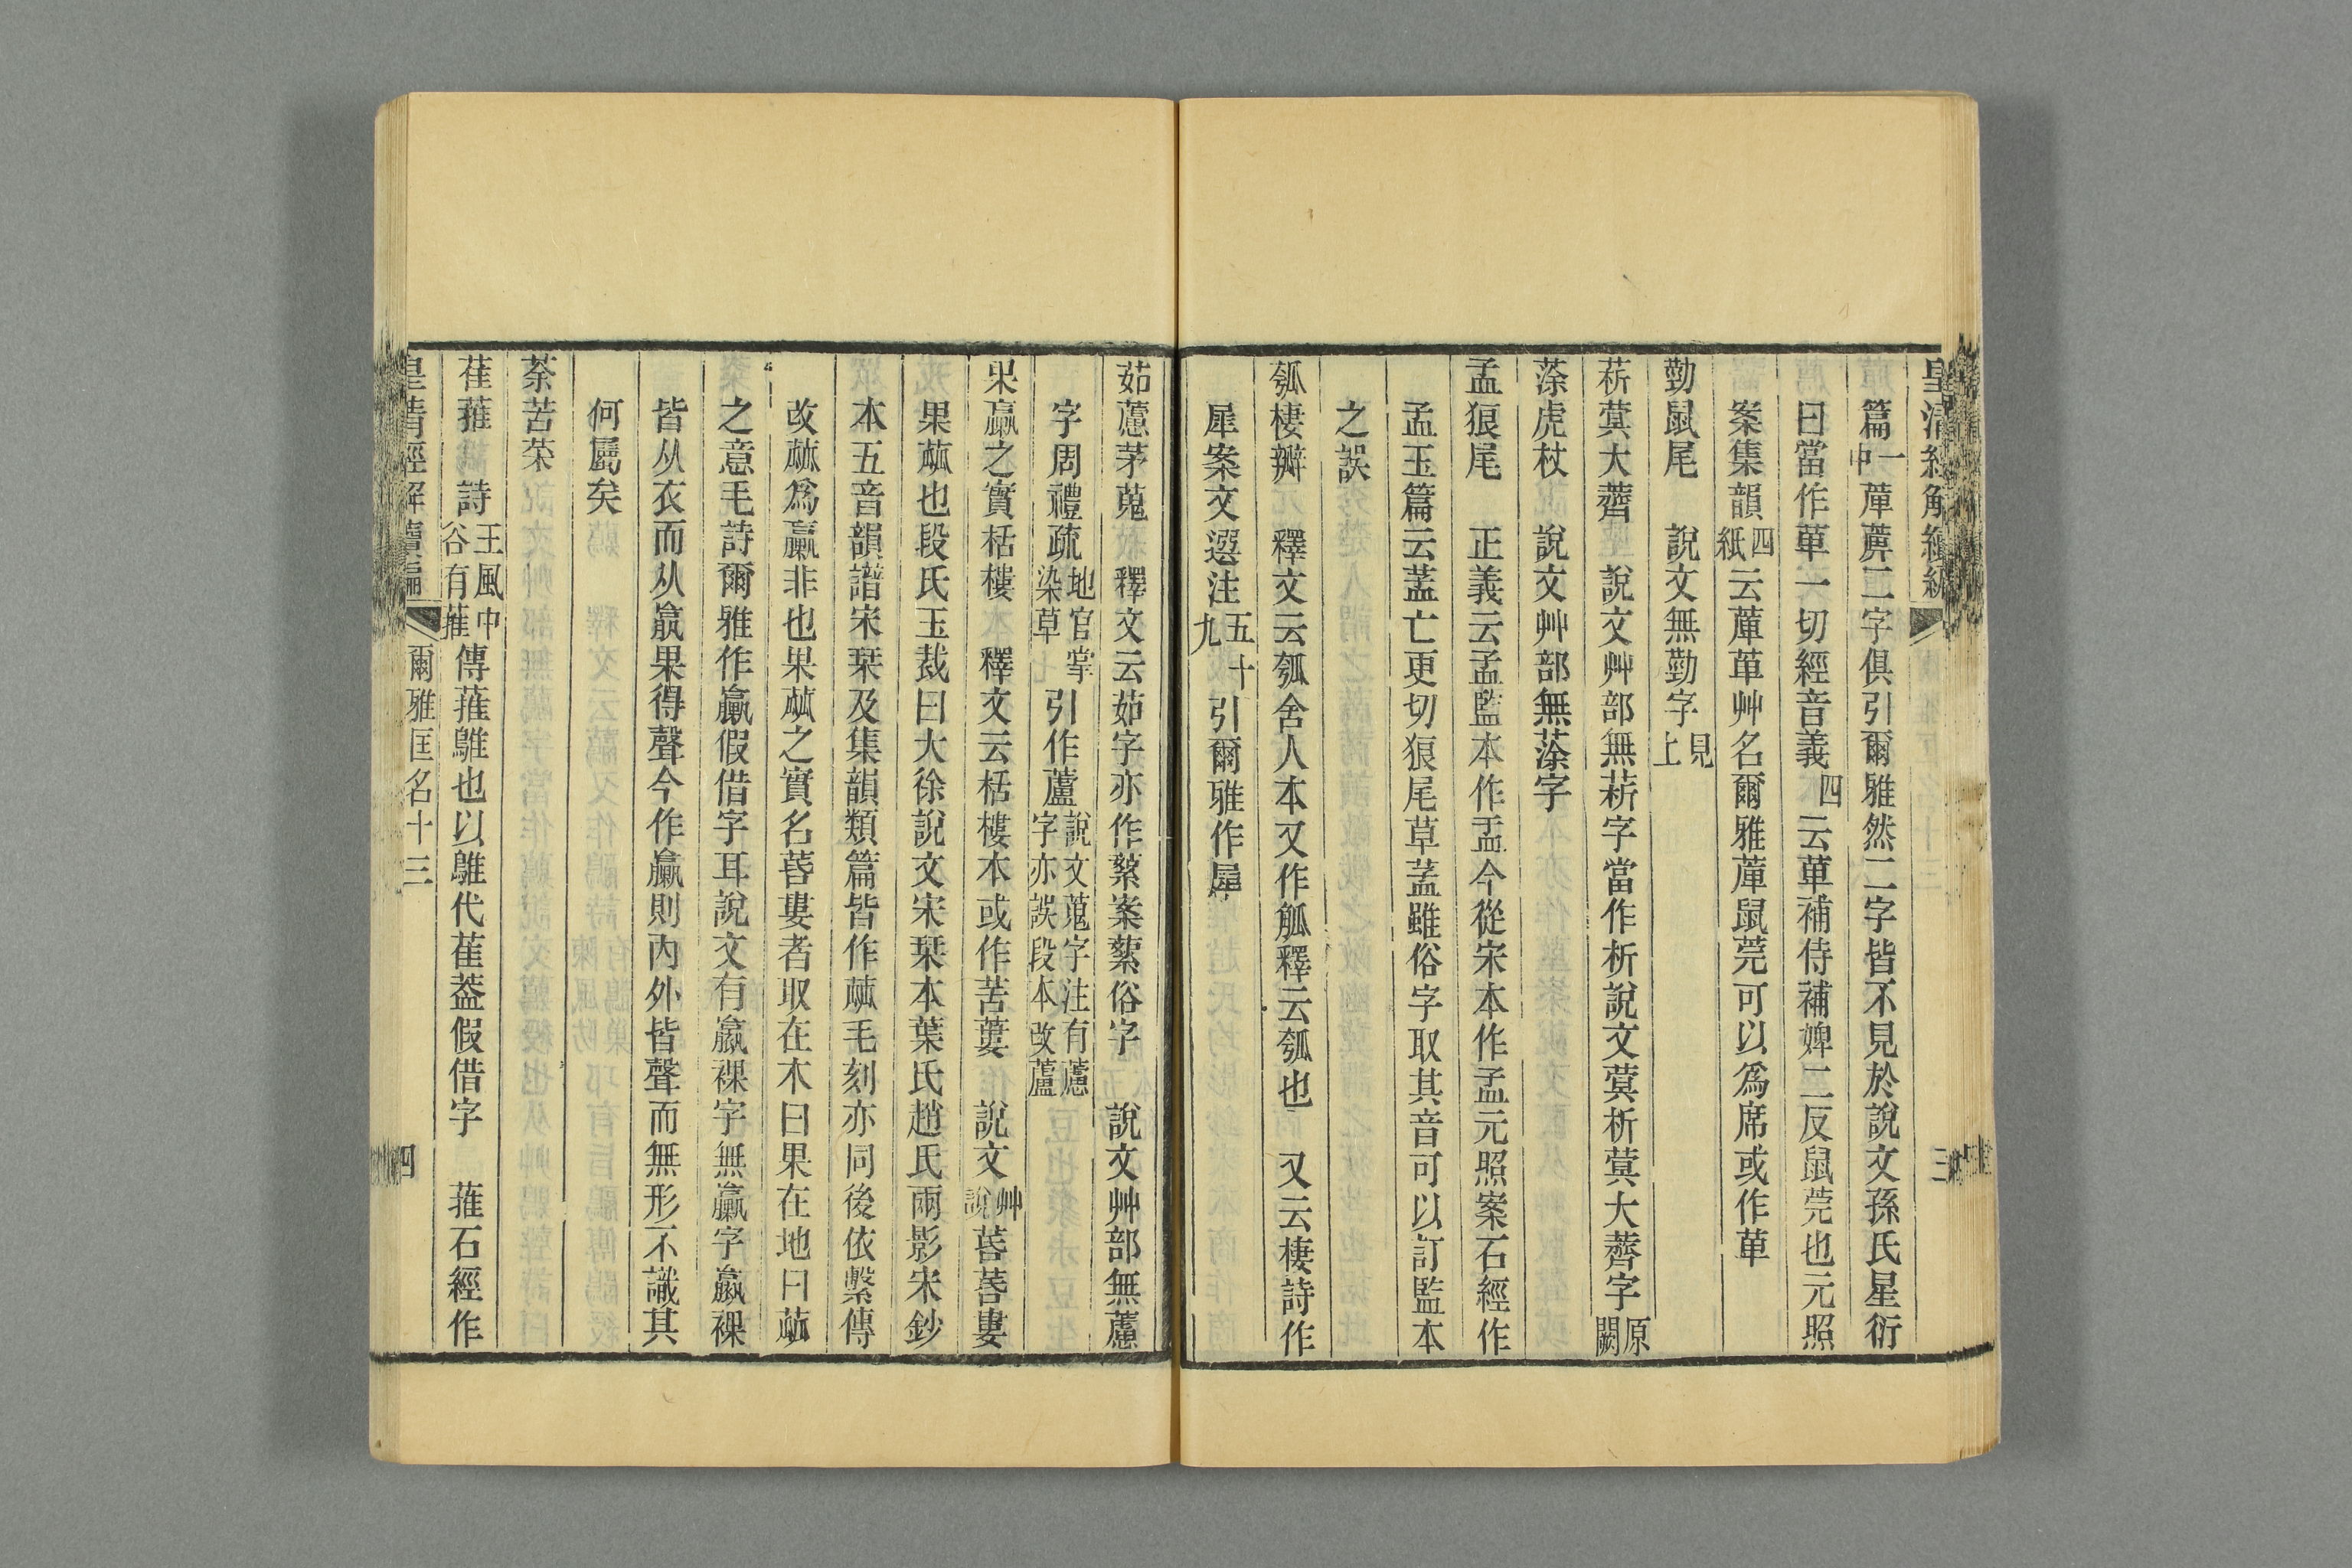 皇清經解續編
三
篇中一蓽薜二字俱引爾雅然二字皆不見於說文孫氏星衍
曰當作萆一切經音義四云萆補侍補婢二反鼠莞也元照
案集韻四紙云蓽萆艸名爾雅蓽鼠莞可以爲席或作萆
勤鼠尾 說文無勤字見上
菥蓂大薺 說文艸部無菥字當作析說文蓂析蓂大薺字原闕
蒤虎杖 說文艸部無蒤字
孟狼尾 正義云孟監本作盂今從宋本作孟元照案石經作
孟玉篇云葢亡更切狼尾草葢雖俗字取其音可以訂監本
之誤
瓠棲瓣 釋文云瓠舍人本又作觚釋云瓠也 又云棲詩作
犀案文選注五十九引爾雅作犀
茹藘茅蒐 釋文云茹字亦作蕠案蕠俗字 說文艸部無藘
字周禮疏地官掌染草引作蘆說文蒐字注有藘字亦誤段本改蘆
果臝之實栝樓 釋文云栝樓本或作苦蔞 說文艸說菩菩婁
果蓏也段氏玉裁曰大徐說文宋栞本葉氏趙氏兩影宋鈔
本五音韻譜宋栞及集韻類篇皆作蓏毛刻亦同後依繫傳
改蓏爲臝非也果蓏之實名菩婁者取在木曰果在地曰蓏
之意毛詩爾雅作臝假借字耳說文有臝裸字無臝字臝裸
皆从衣而从𣎆果得聲今作臝則內外皆聲而無形不識其
何屬矣
荼苦菜
萑蓷 詩王風中谷有蓷傳蓷鵻也以鵻代萑葢假借字 蓷石經作
皇清經解續編 爾雅匡名十三 四